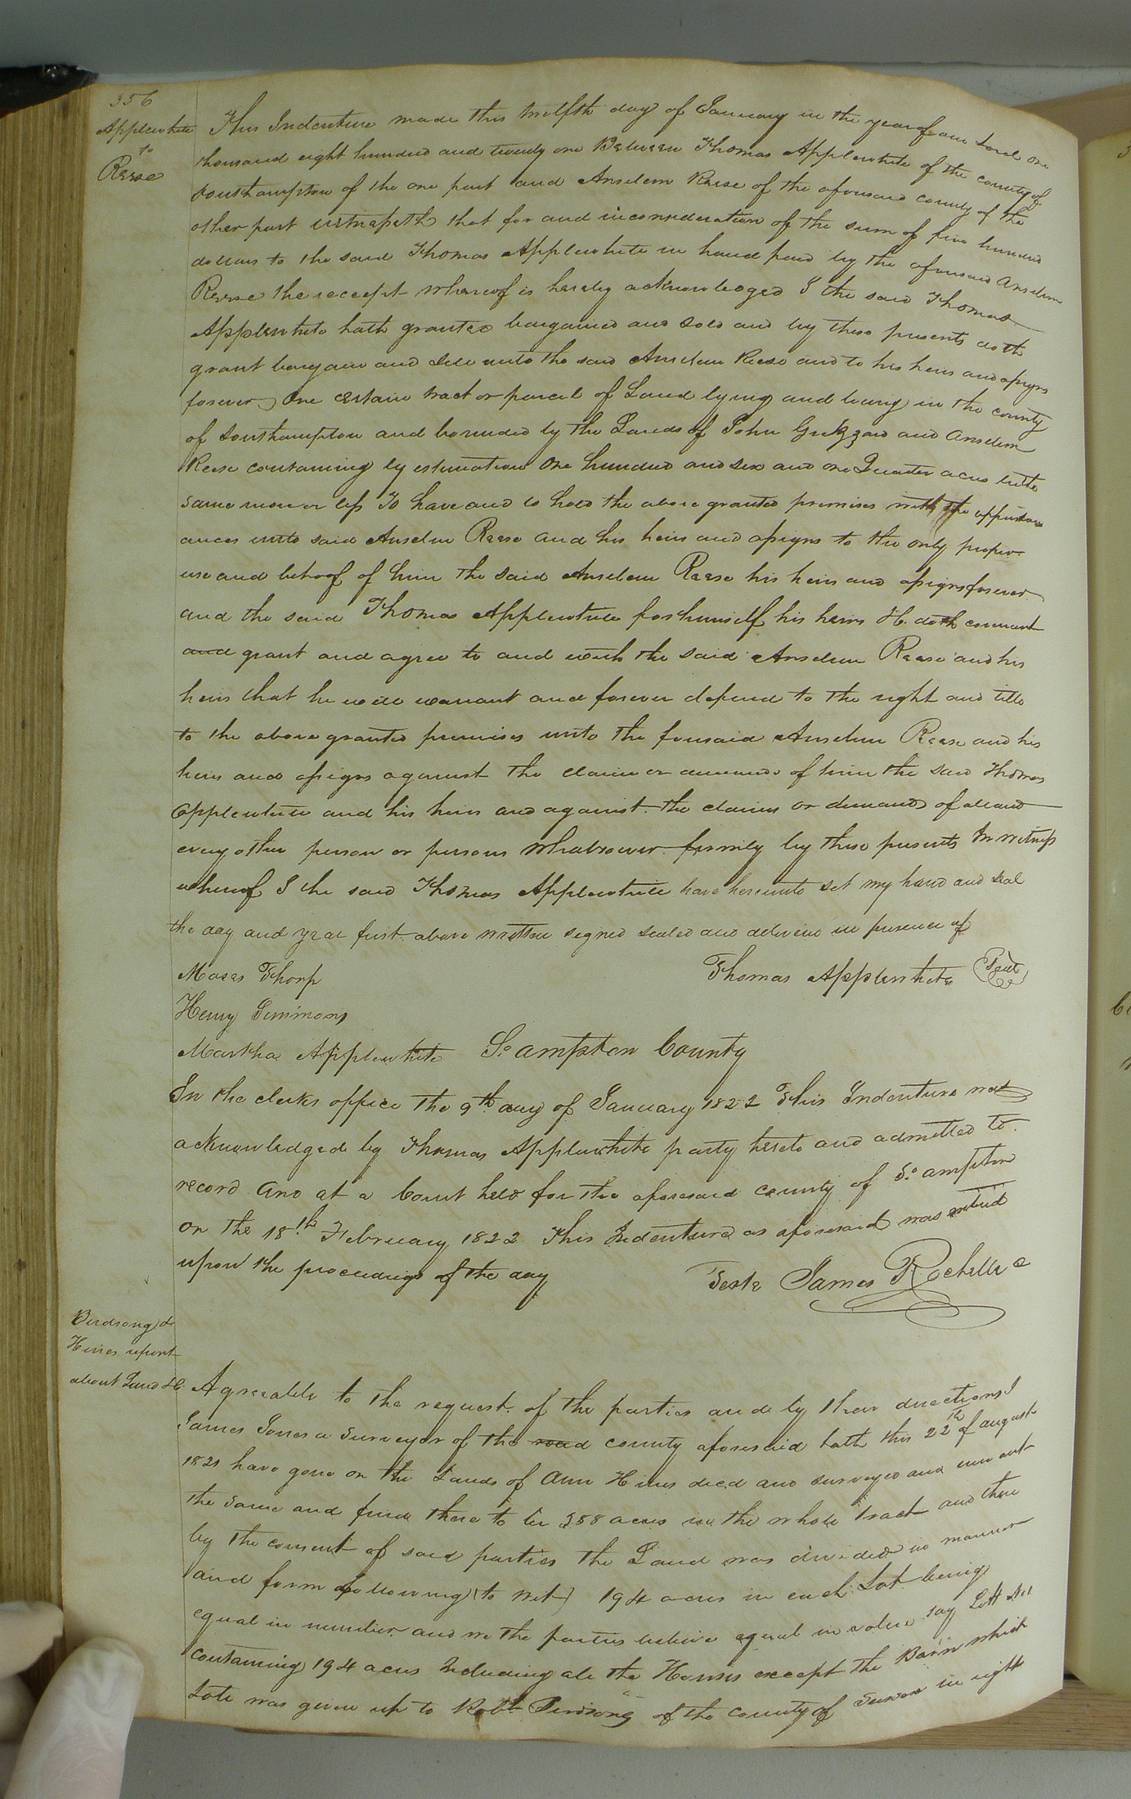 356
Applewhite
to
Reese
This Indenture made this twelfth day of January in the year of our Lord one
thousand eight hundred and twenty one Between Thomas Applewhite of the county of
Southampton of the one part and Anselm Reese of the aforesaid county of the
other part witnesseth that for and inconsideration of the sum of five hundred
dollars to the said Thomas Applewhite in hand paid by the aforesaid Anselm
Reese the receept whereof is hereby acknowledged I the said Thomas
Applewhite hath granted bargained and sold and by these presents doth
grant bargain and sell unto the said Anselm Reese and to his heirs and assigns
forever, One certain tract or parcel of Land lying and being in the county
of Southampton and bounded by the Lands of John and Anselm
Reese containing by estimation One hundred and six and one Quarter acres be the
same more or less To have and to hold the above granted premises with the appurten
ances unto said Anselm Reese and his heirs and assigns to the only proper
use and behoof of him the said Anselm Reese his heirs and assigns forever
and the said Thomas Applewhite for himself his heirs &c. doth covenant
and grant and agree to and with the said Anselm Reese and his
heirs that he will warrant and forever defend to the right and title
to the above granted premises unto the foresaid Anselm Reese and his
heirs and assigns against the claim or demands of him the said Thomas
Applewhite and his heirs and against the claims or demands of all and
every other person or persons whatsoever firmly by these presents In witness
whereof I the said Thomas Applewhite have hereunto set my hand and seal
the day and year first above written signed sealed and deliverd in presence of
Moses Thorp Thomas Applewhite Seal
Henry Simmons
Martha Applewhite So ampton County
In the clerks office the 9th day of January 1822 This Indenture was
acknowledged by Thomas Applewhite party hereto and admitted to
record And at a Court held for the aforesaid county of So. ampton
on the 18th February 1822 This Indenture as aforesaid was entered
upon the proceedings of the day Teste James Rochelle
Birdsong &
Hines report
about Land &c
Agreeable to the request of the parties and by their directions I
James Jones a Surveyor of the road county aforesaid hath this 22th of august
1821 have gone on the Lands of Ann Hines decd and surveyed and run out
the same and find there to be 388 acres in the whole tract and then
by the consent of said parties the Land was divided in manner
and form following (to wit) 194 acres in each Lot being
equal in number and we the parties believe equal in value say Lott No 1
containing 194 acres Including all the Houses except the Barn which
Lott was given up to Robt Birdsong of the county of Sussex in right